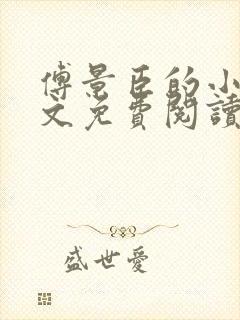 傅景臣的小
文免費閱讀
盛世愛